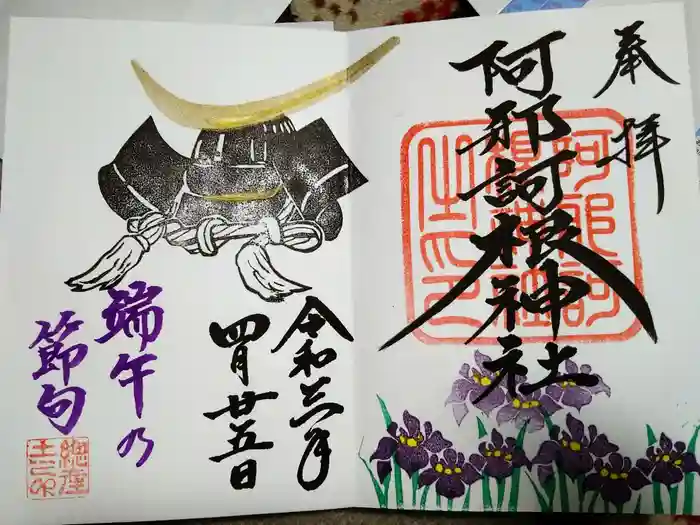 奉拝
阿邪訶根神社
令和三年
四月廿五日
端午乃
節句